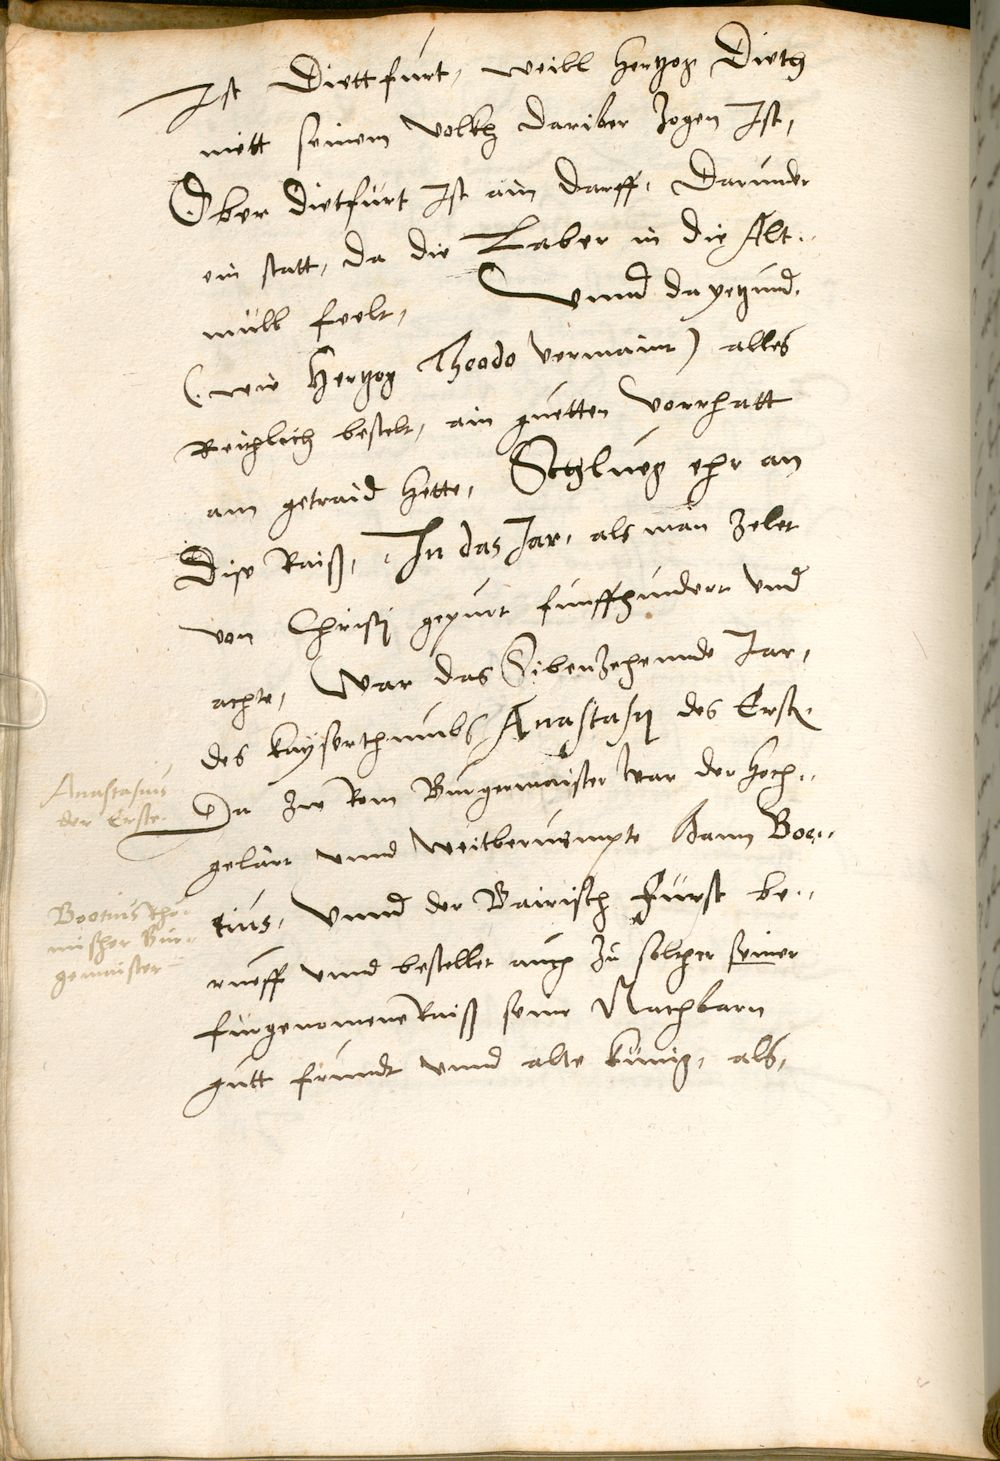 Ist Diettfurt, weill hertzog Dieth
mitt seinem Volkh dariber zogen Ist,
Ober dietfurt Ist ain darff, Darunder
ein statt, da die Laber in die Alt..
müll feelt, Vnnd da yetzund.
(wie Hertzog Theodo vermaint) alles
Reichlich bestelt, ain guetten Vorrhatt
am getraid hette, Schlueg ehr an
Dise Raiß, In das Jar, als man zelet
von Christi gepurt funffhundert vnd
achte, War das Sibenzehennde Jar,
des kayserthumbs Anastasij des Ersten
Da zw Rom Burgermaister war der hoch..
gelärt vnnd weitberuempte Mann Boe..
tius, Vnnd der Bairisch Fürst be..
rueff vnnd bestellet auch zu solcher seiner
fürgenomene Raiß seine Nachbarn
gutt freundt vnnd alte künig, als,
Anastasius
der Erste.
Boetius Rho..
mischer Bur..
germaister